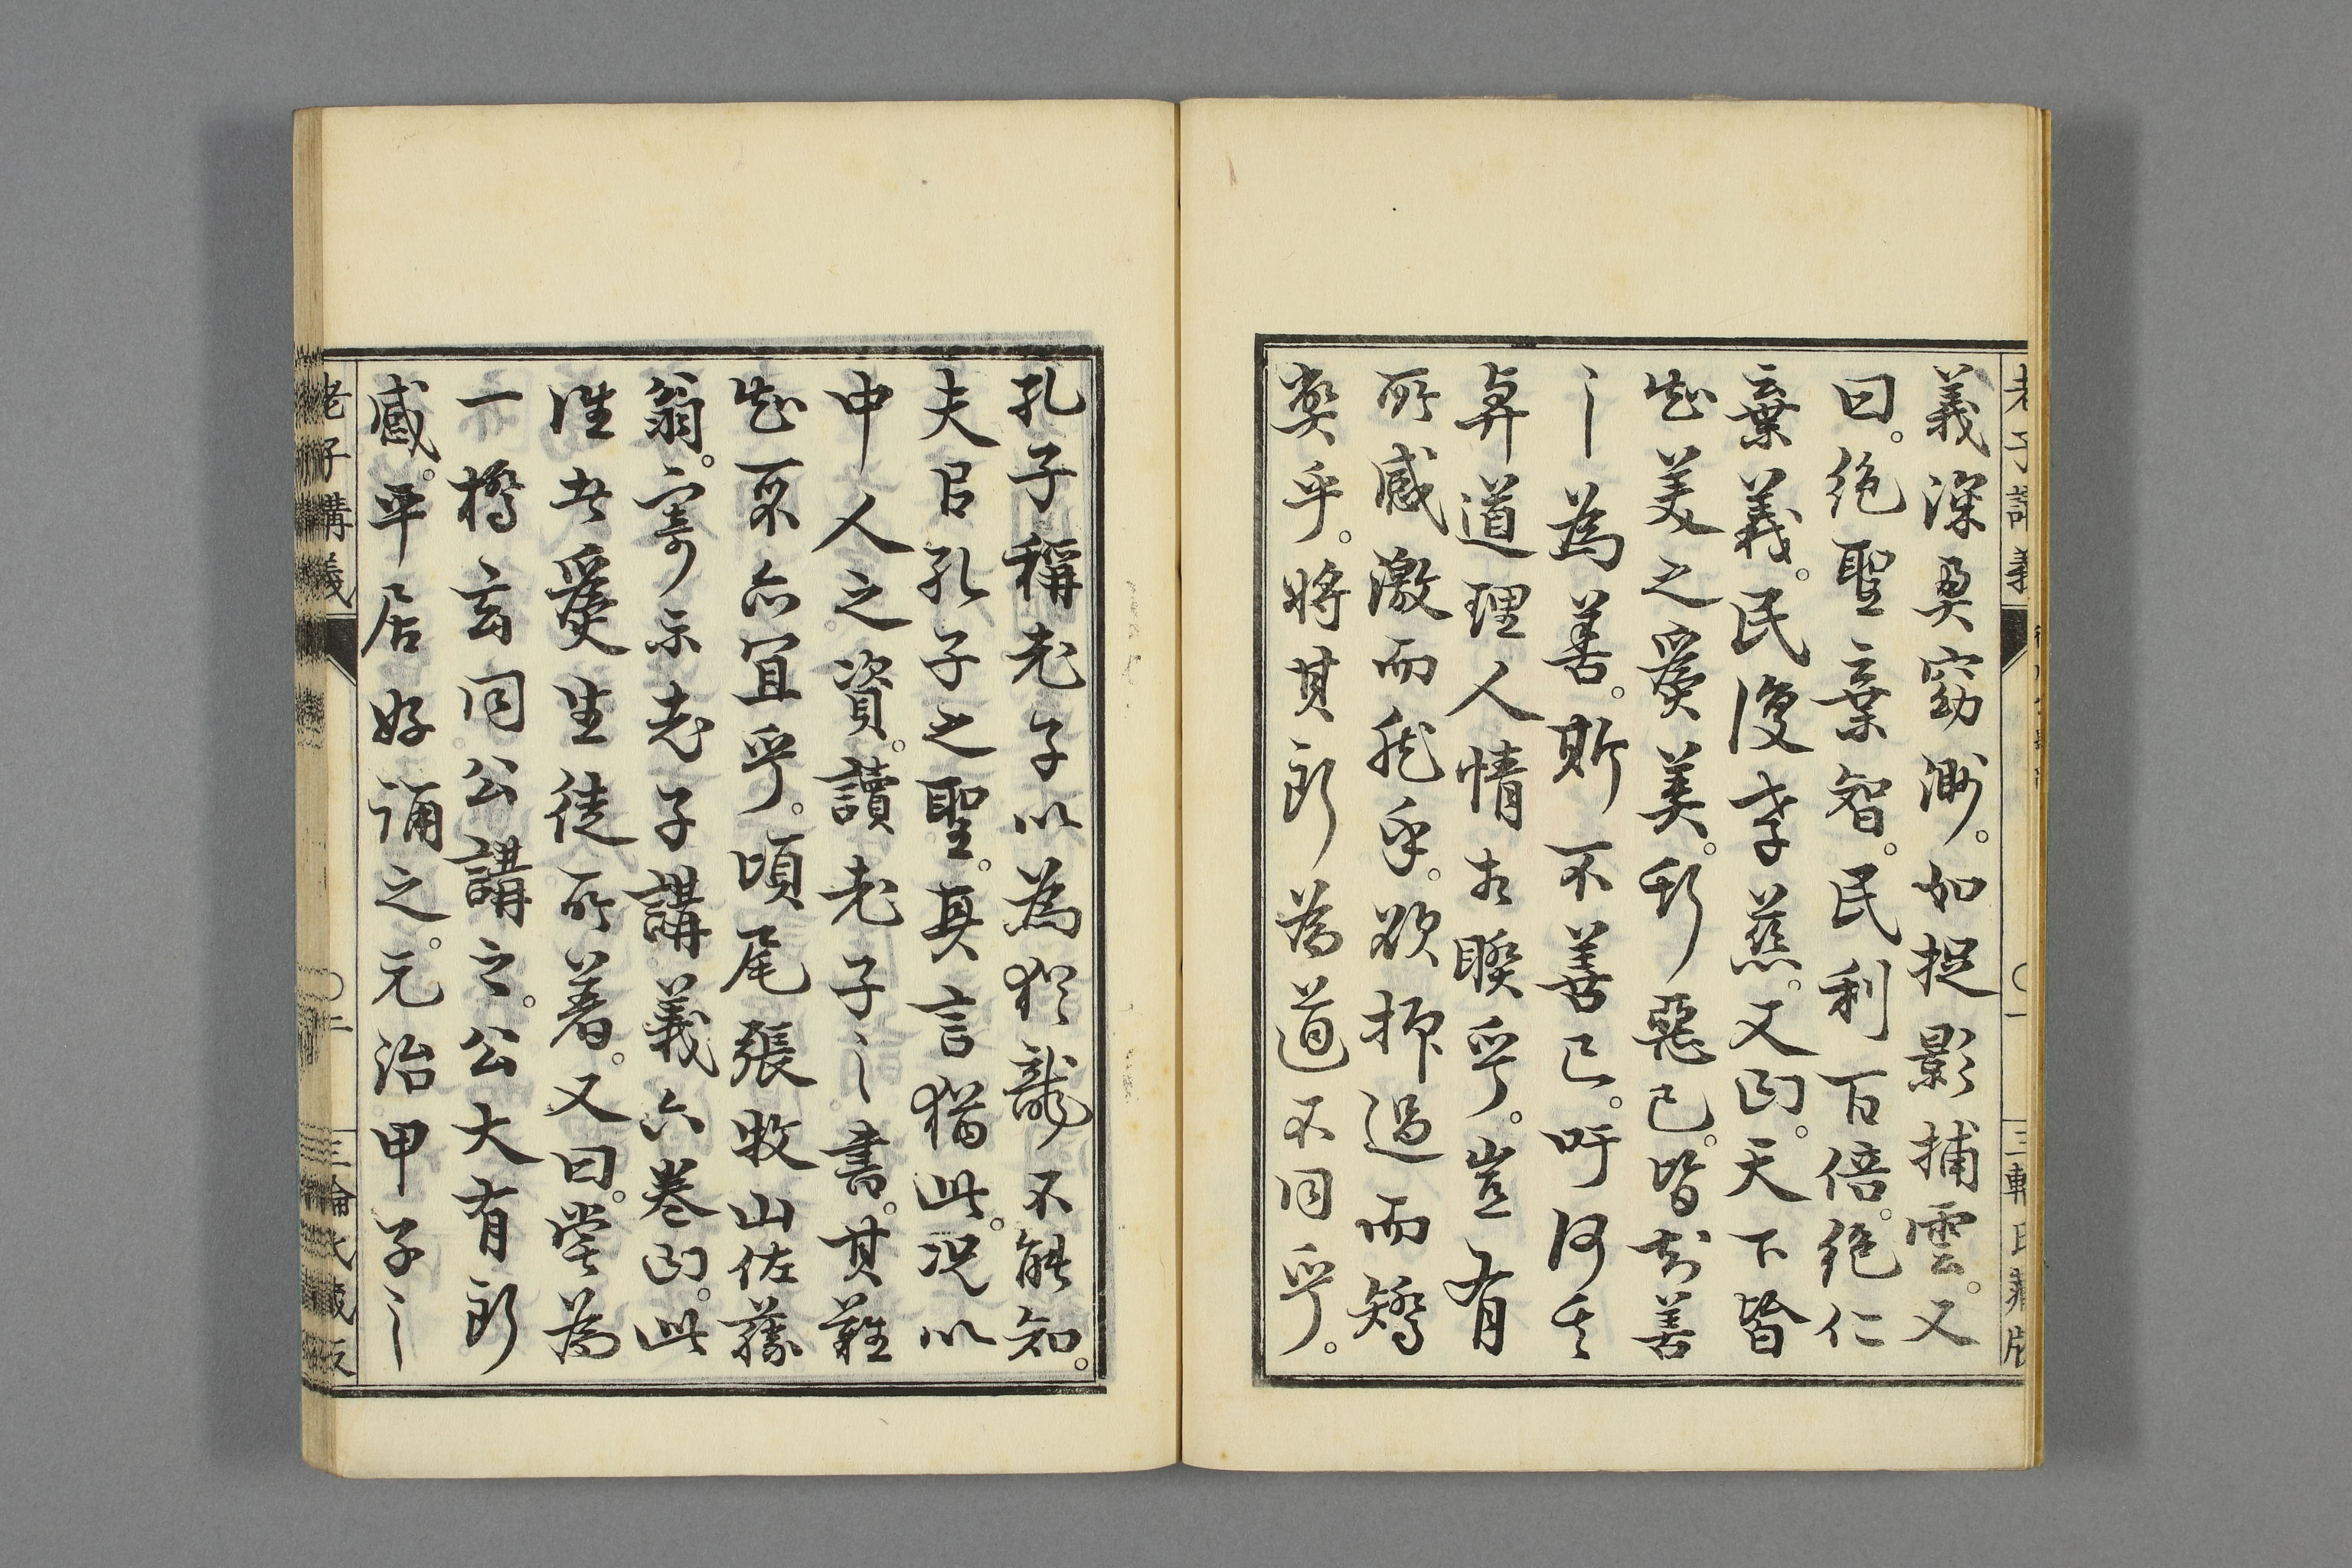 義深奧窈渺。如捉影捕雲。又
曰。絶聖棄智。民利百倍。絶仁
棄義。民復孝慈。又曰。天下皆
知美之爲美。斯惡已。皆知善
之爲善。斯不善已。吁何其
与道理人情相睽乎。豈有
所感激而然乎。欲抑過而矯
弊乎。將其所為道不同乎。
孔子稱老子以為猶龍不能知。
夫以孔子之聖。其言猶此。況以
中人之資。讀老子之書。其難
知不亦宜乎。頃尾張牧山佐藤
翁。寄示老子講義六巻曰。此
唯吾爲生徒所著。又曰。嘗為
一橋玄同公講之。公大有所
感。平居好誦之。元治甲子之
老子講義
〇一
老子講義
〇二